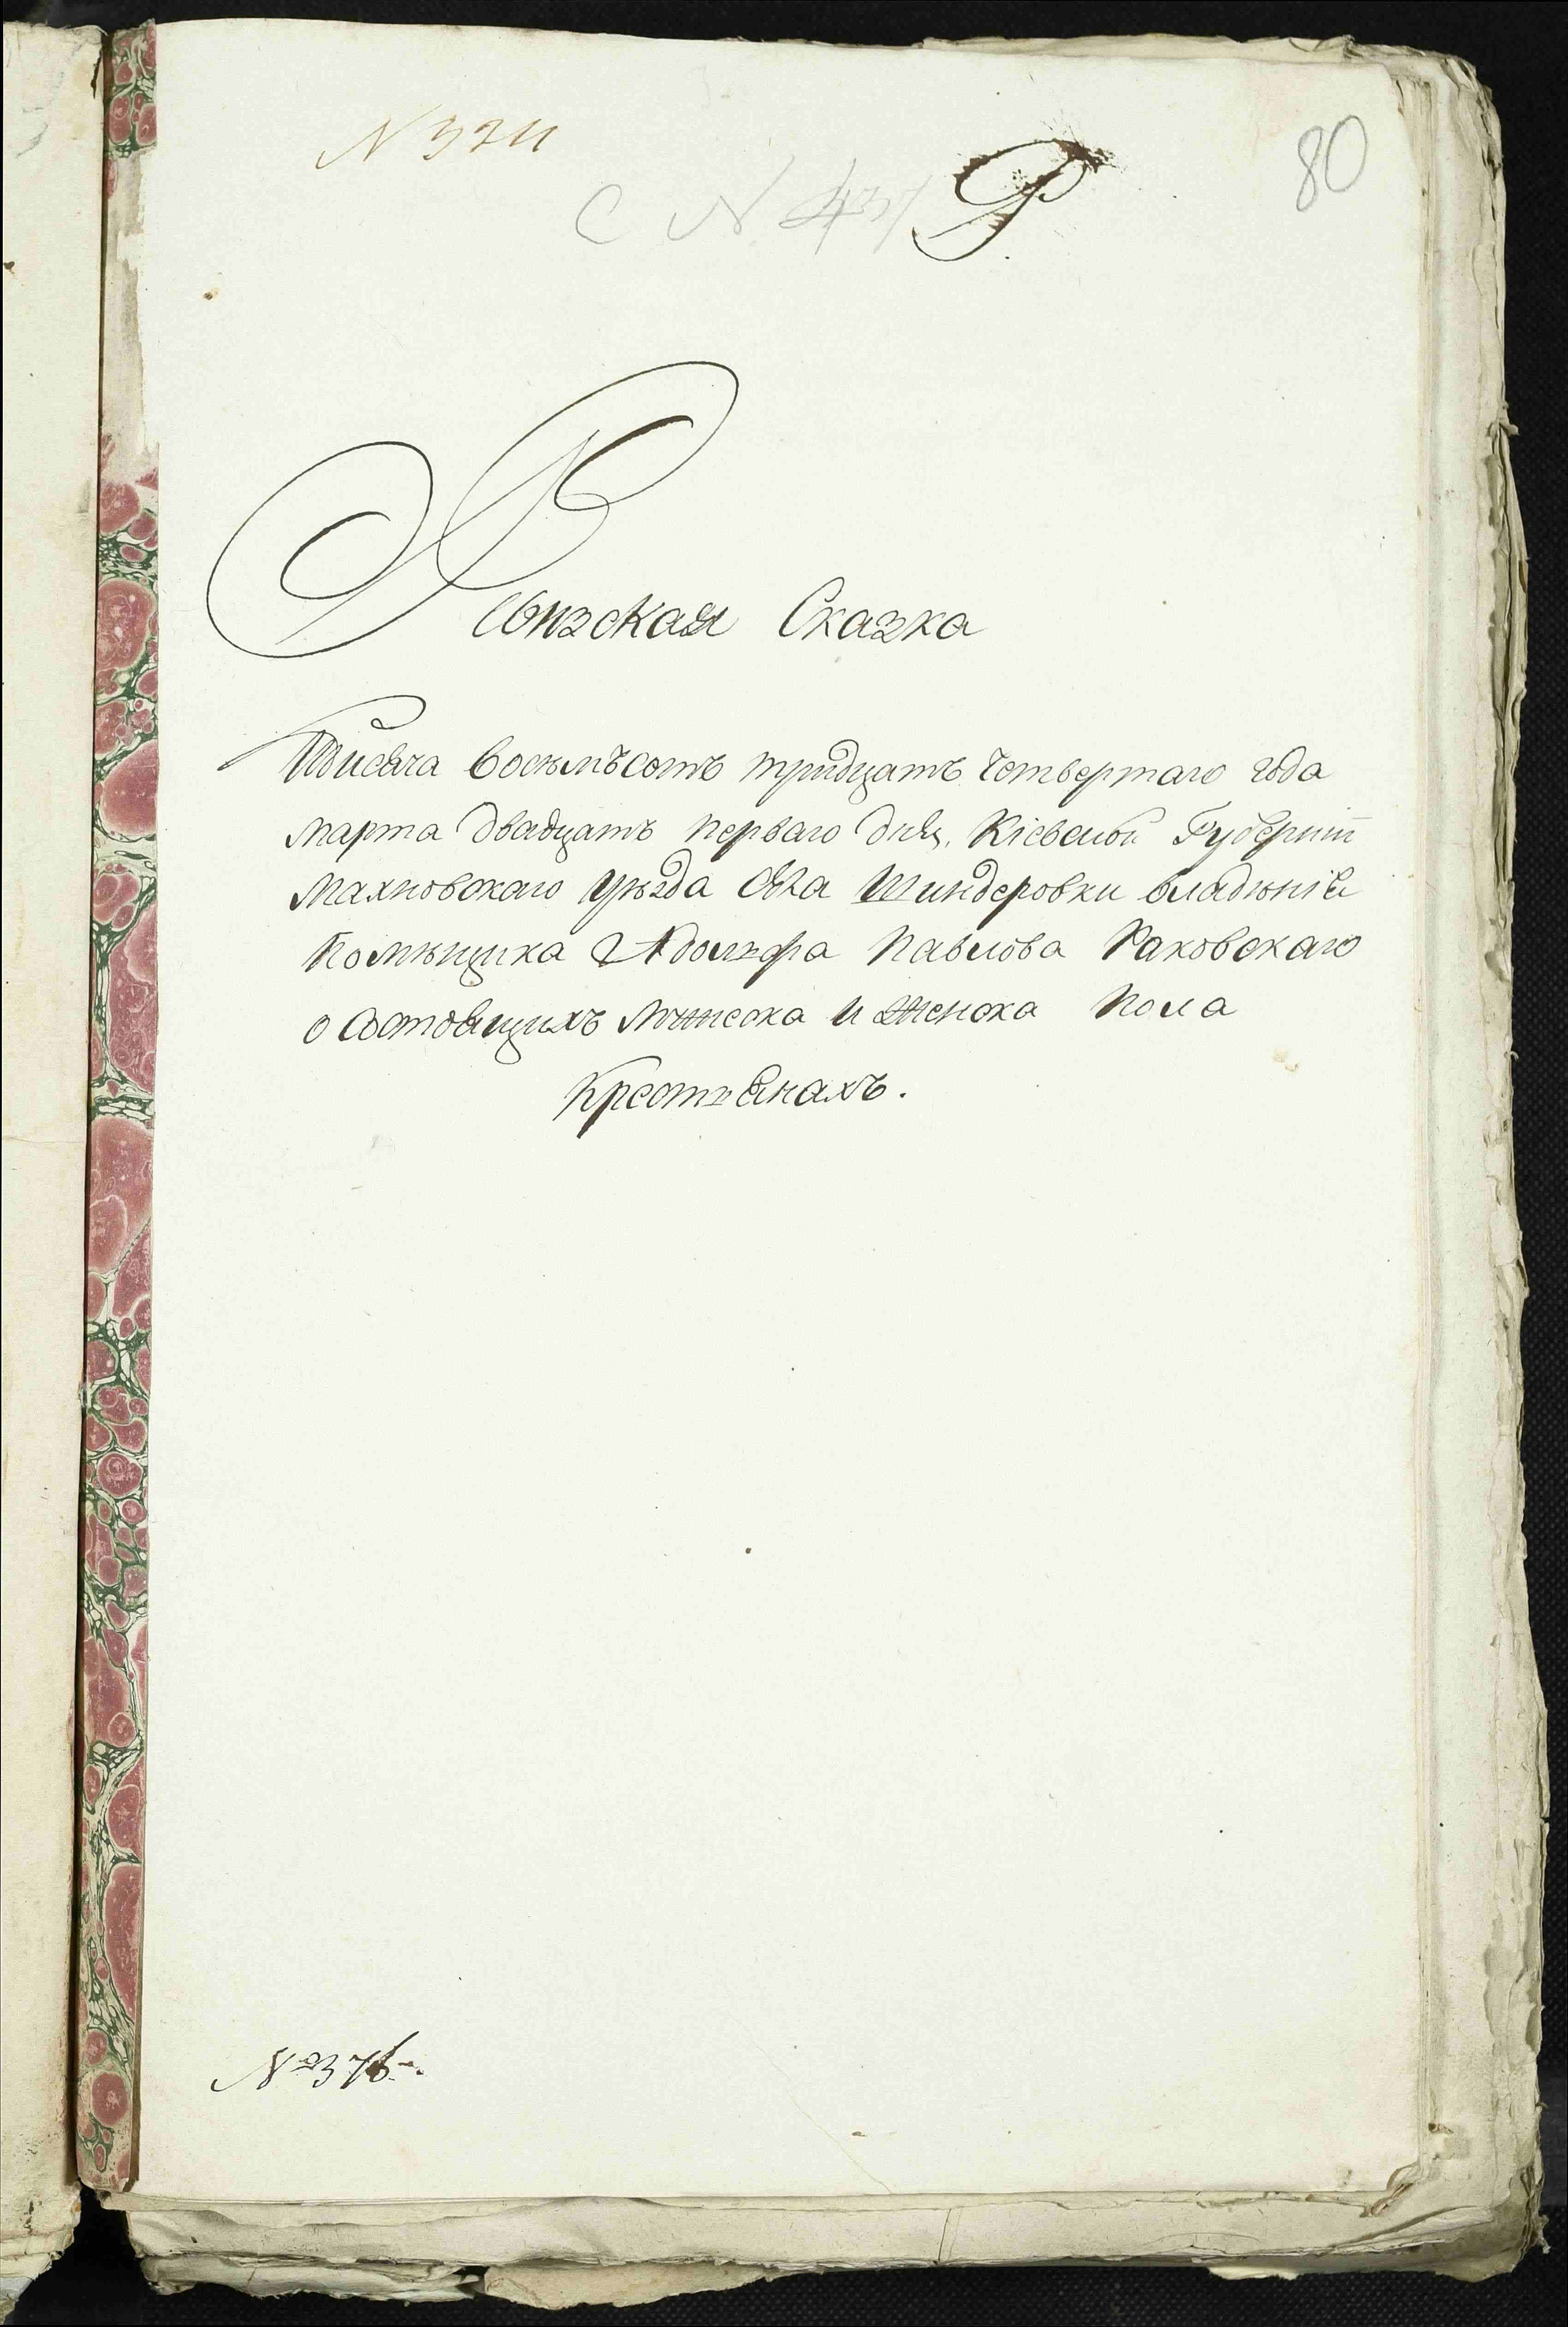 80
Ревизская Сказка
Тисяча восемьсотъ тридцать четвертаго года
марта двадцать перваго дня, Кіевской Губерніи
Махновскаго уѣзда села Шиндеровки владѣнія
Помѣщика Адольфа Павлова Раковскаго
о состоящихъ мужеска и женска пола
Крестьянахъ.
№ 376